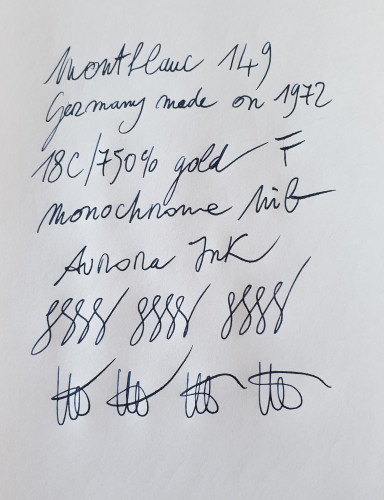 Montblanc 149
Germany made on 1972
18C/750% gold F
monochrome nib
Aurora Ink